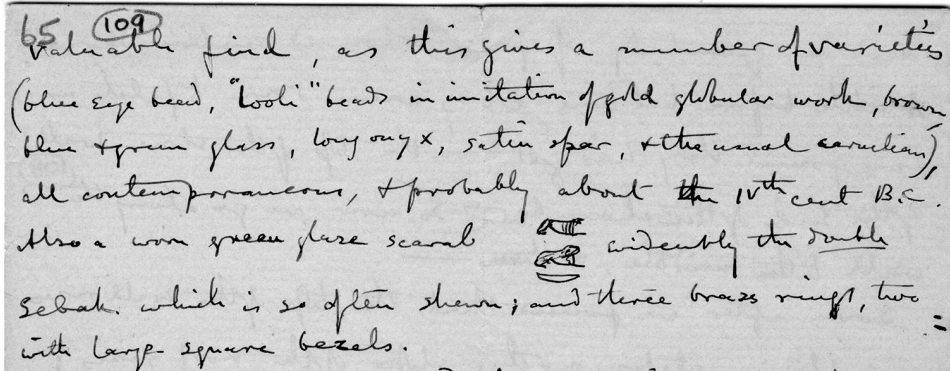 65 109
valuable find, as this gives a number of varieties
(blue eye bead, "looli" beads in imitation of gold globular work, brown
blue & green glass, long onyx, satin spar, & the usual carnelian),
all contemporaneous, & probably about the IVth cent B.C.
Also a worn green glaze scarab evidently the double
Sebak. which is so often shewn; and three brass rings, two
with large square bezels.